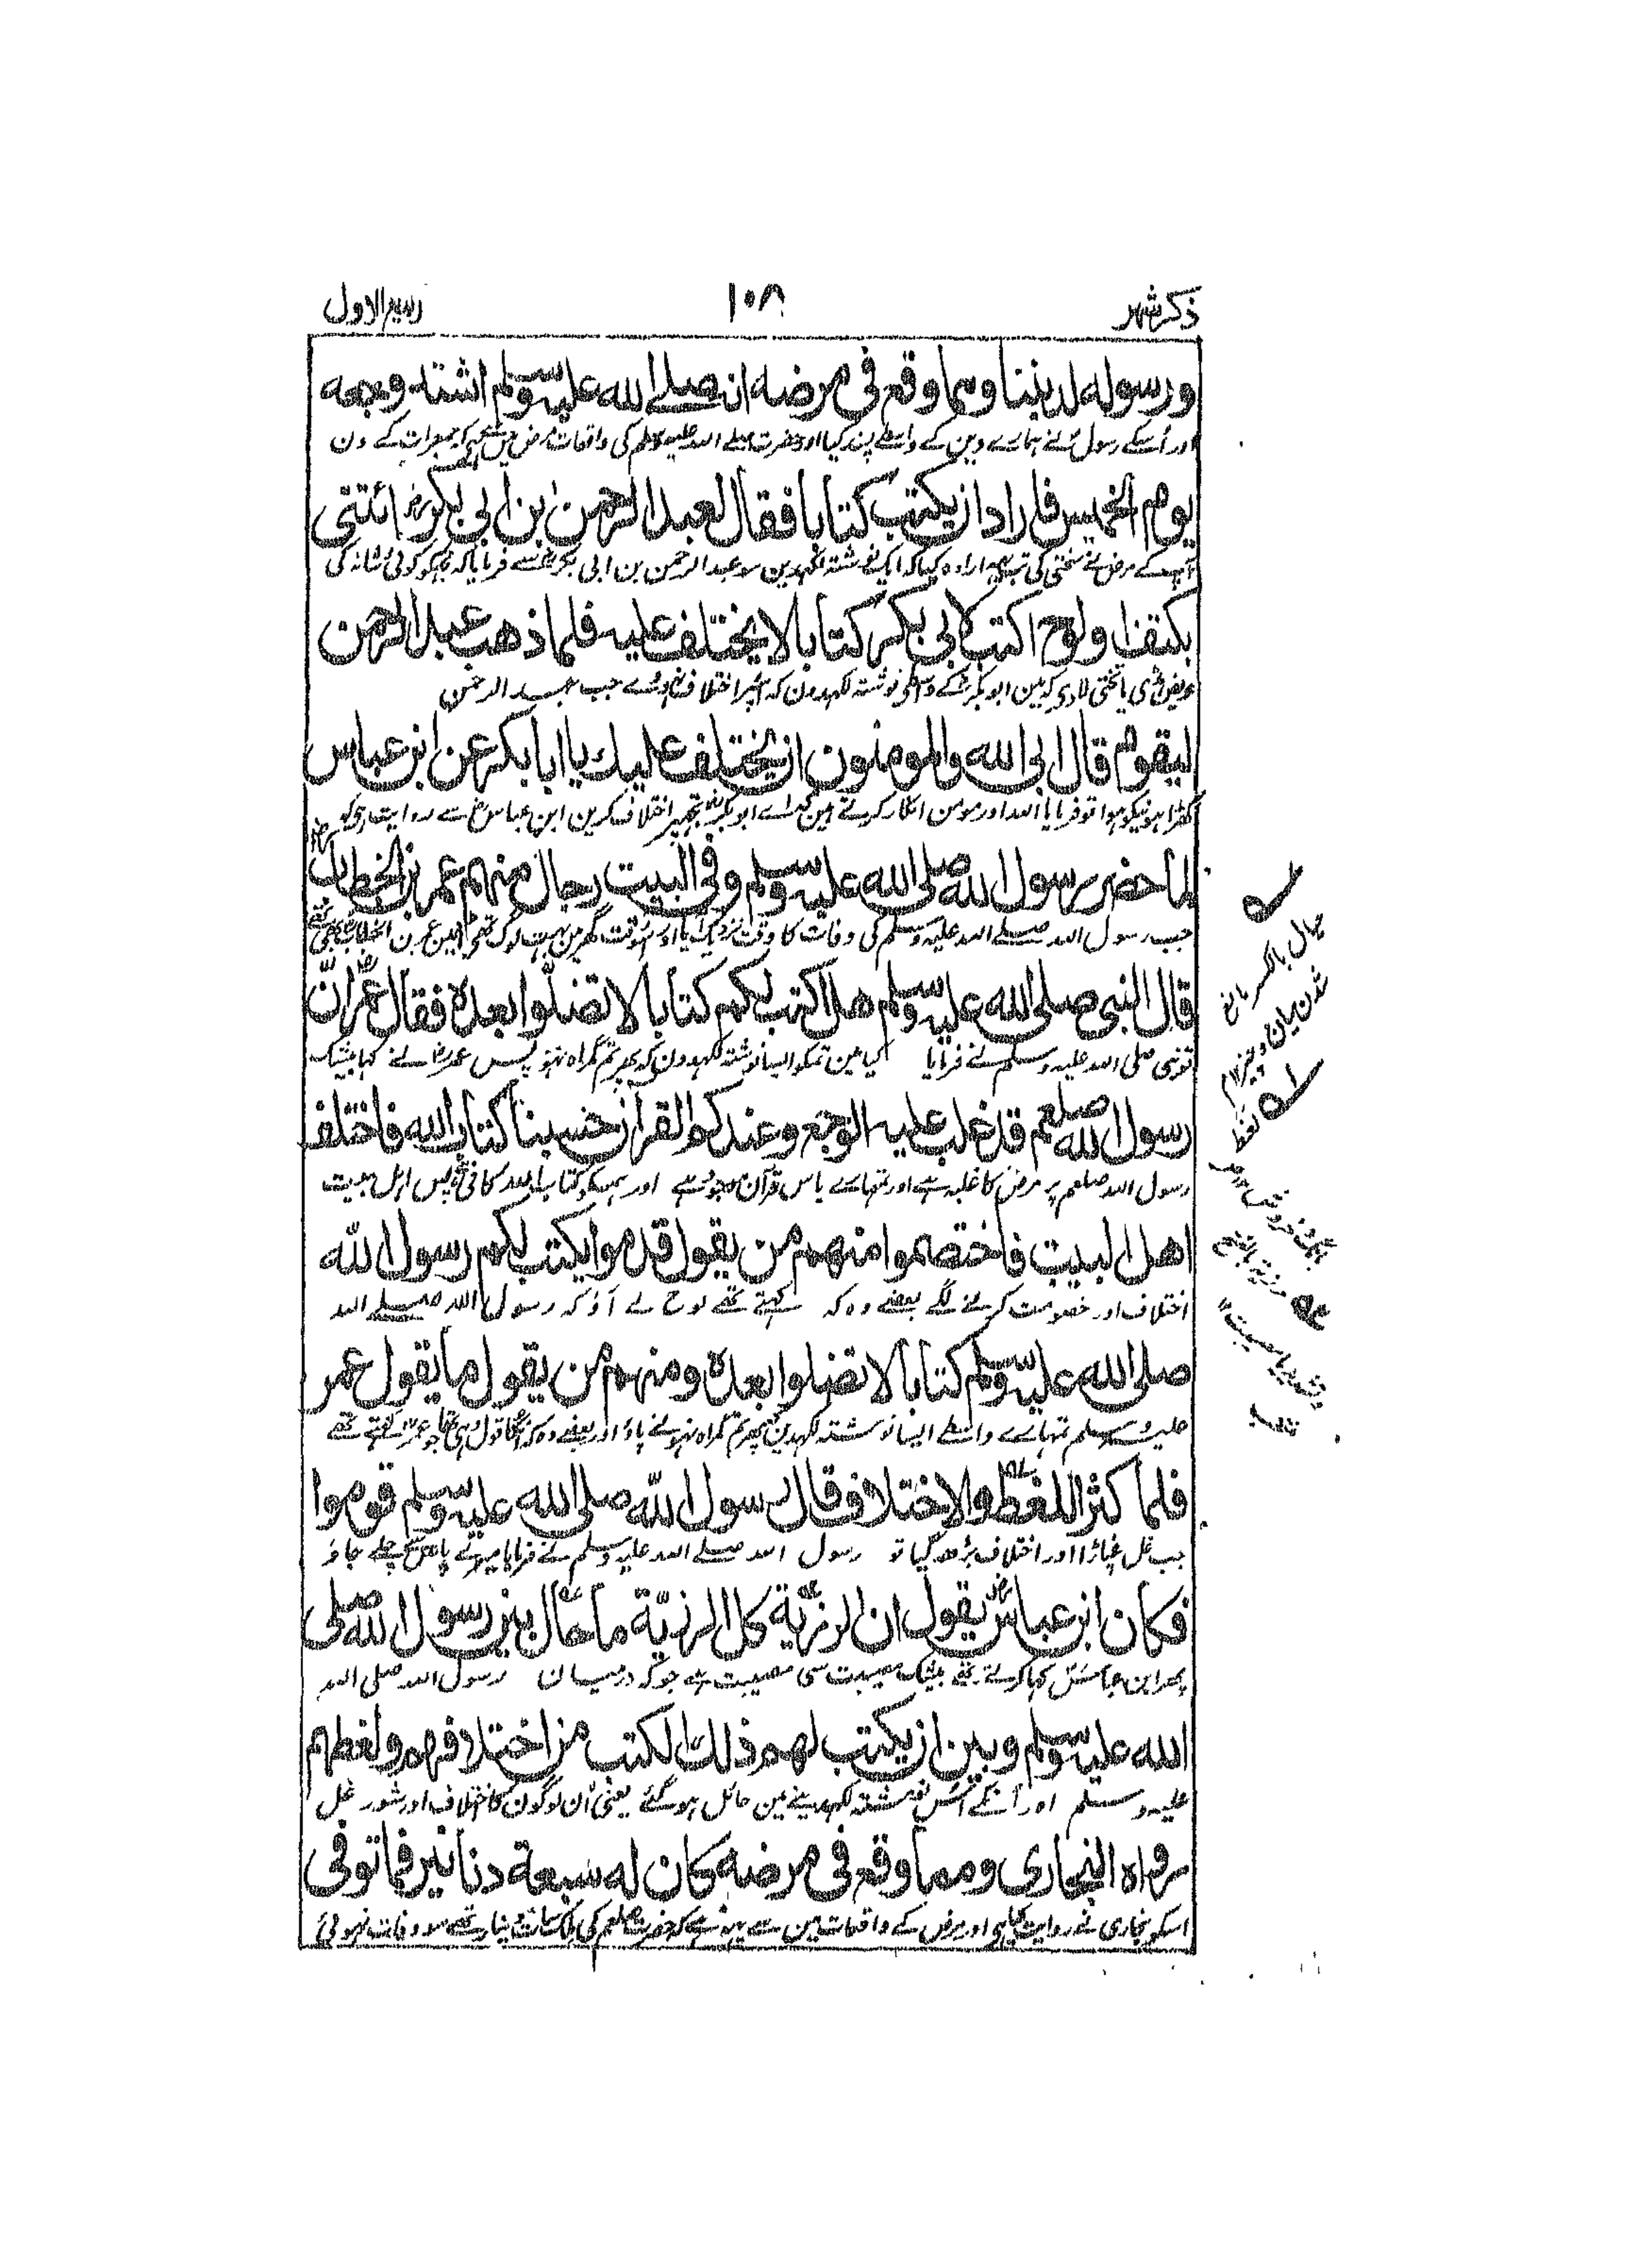 ذکر شہر
۱۰۸
ربیع الاول
ورسوله لديننا ومما وقع في مرضه انه صلے الله عليه وسلم اشتد وجعه
اور اُسکے رسول نے ہمارے دین کے واسطے پسند کیا اور حضرت صلے اللہ علیہ وسلم کی واقعات مرض میں کہ جمعرات کے دن
يوم الخميس فاراد ان يكتب كتابا فقال لعبد الرحمن بن ابي بكر رض ائتني
آپکے مرض نے سختی کی تب ارادہ کیا کہ ایک نوشتہ لکھدین سو عبد الرحمن بن ابی بکر رض سے فرمایا کہ مجھکو کوئی شانہ کی
بكتف او لوح اكتب لابي بكر كتابا لا يختلف عليه فلما ذهب عبد الرحمن
ہڈی یا تختی لادی کہ مین ابو بکر کے واسطے نوشتہ لکھدون کہ اُسپر اختلاف نہووے جب عبد الرحمن
ليقوم قال ابى الله والمومنون ان يختلف عليك يا ابا بكر عن ابن عباس رض
کھڑا ہونیکو ہوا تو فرمایا اللہ اور مومن انکار کرتے ہین کہ اے ابو بکر تجھپر اختلاف کرین ابن عباس رض سے روایت ہے کہ
لما حضر رسول الله صلى الله عليه وسلم وفي البيت رجال منهم عمر بن الخطاب
جب رسول اللہ صلے اللہ علیہ وسلم کی وفات کا وقت نزدیک آیا اور اُسوقت گھر مین بہت لوگ تھے اُنہین عمر بن الخطاب بھی تھے
قال النبي صلى الله عليه وسلم هل اكتب لكم كتابا لا تضلوا بعده فقال عمر ان
تو نبی صلی اللہ علیہ وسلم نے فرمایا کیا مین تمکو ایسا نوشتہ لکھدون کہ پھر تم گمراہ نہو پس عمر رض نے کہا بیشک
رسول الله صلعم قد غلب عليه الوجع وعندكم القران حسبنا كتاب الله فاختلف
رسول اللہ صلعم پر مرض کا غلبہ ہے اور تمہارے پاس قرآن موجود ہے اور ہمکو کتاب اللہ کافی ہے پس اہل بیت
اهل البيت فاختصموا منهم من يقول قدموا يكتب لكم رسول الله
اختلاف اور خصومت کرنے لگے بعضے وہ کہ کہتے تھے لوح لے آؤ کہ رسول اللہ صلے اللہ
صلى الله عليه وسلم كتابا لا تضلوا بعده ومنهم من يقول ما يقول عمر
علیہ وسلم تمہارے واسطے ایسا نوشتہ لکھدین کہ پھر تم گمراہ نہونے پاؤ اور بعضے وہ کہ انکا قول وہی تھا جو عمر کہتے تھے
فلما كثر اللغط والاختلاف قال رسول الله صلى الله عليه وسلم قوموا
جب غل غپاڑا اور اختلاف بڑھ گیا تو رسول اللہ صلے اللہ علیہ وسلم نے فرمایا میرے پاس سے چلے جاؤ
فكان ابن عباس يقول ان الرزية كل الرزية ما حال بين رسول الله صلى
پھر ابن عباس کہا کرتے تھے بیشک مصیبت سی مصیبت ہے جو کہ درمیان رسول اللہ صلی اللہ
الله عليه وسلم وبين ان يكتب لهم ذلك الكتب من اختلافهم ولغطهم
علیہ وسلم اور اُنکے اُس نوشتہ لکھدینے مین حائل ہوگئے یعنی اُن لوگون کا اختلاف اور شور غل
رواه البخاري ومما وقع في مرضه كان له سبعة دنانير فما توفى
اسکو بخاری نے روایت کیا ہی اور مرض کے واقعات مین سے یہہ ہے کہ حضرت صلعم کی سات دینار تھے سو وفات نہوئی
حیال بالکسر مانع
شدن میان دو چیز
لغط